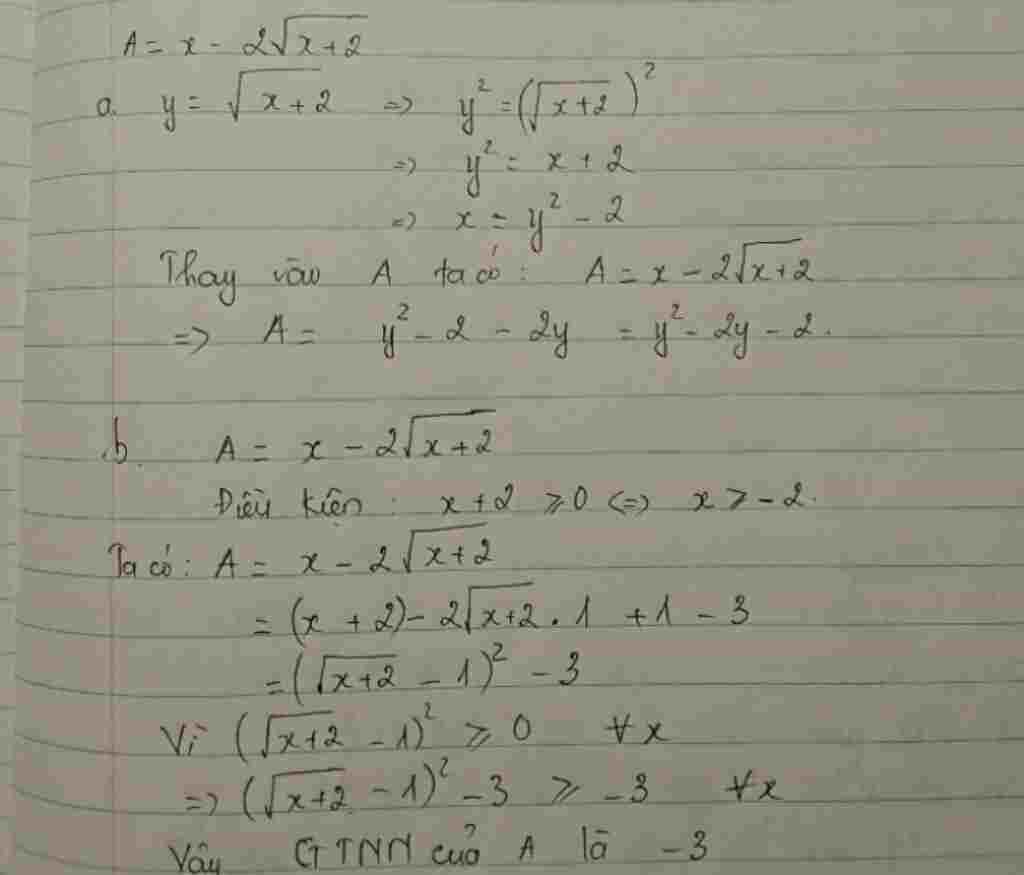 A = x - 2√(x+2)
a. y = √(x+2) => y² = (√(x+2))²
=> y² = x + 2
=> x = y² - 2
Thay vào A ta có : A = x - 2√(x+2)
=> A = y² - 2 - 2y = y² - 2y - 2.
b. A = x - 2√(x+2)
Điều kiện : x + 2 ⩾ 0 <=> x > -2.
Ta có : A = x - 2√(x+2)
= (x + 2) - 2√(x+2) . 1 + 1 - 3
= (√(x+2) - 1)² - 3
Vì (√(x+2) - 1)² ⩾ 0 ∀x
=> (√(x+2) - 1)² - 3 ⩾ -3 ∀x
Vậy GTNN của A là -3